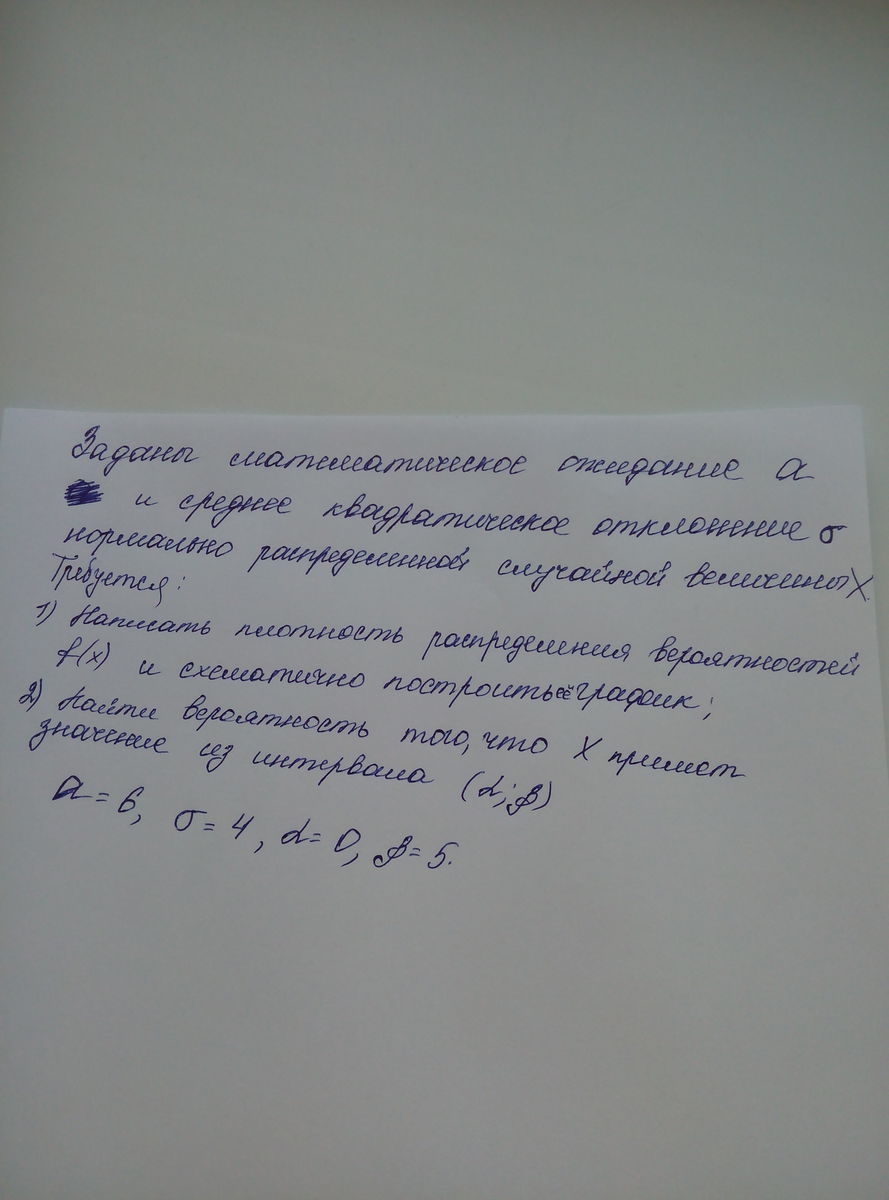 Заданы математическое ожидание a
и среднее квадратическое отклонение σ
нормально распределенной случайной величины X.
Требуется:
1) Написать плотность распределения вероятностей
f(x) и схематично построить её график;
2) Найти вероятность того, что X примет
значение из интервала (α; β)
a = 6, σ = 4, α = 0, β = 5.